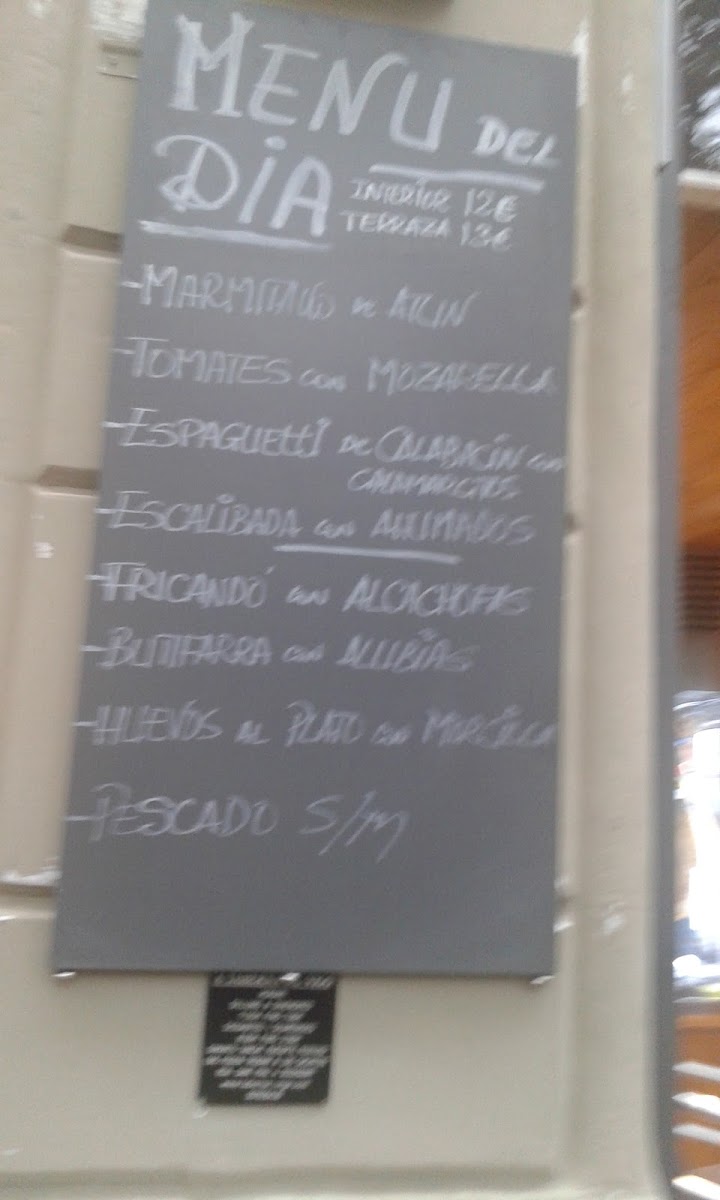 MENU DEL
DIA
INTERIOR 12€
TERRAZA 13€
-MARMITAKO de ATUN
-TOMATES con MOZARELLA
-ESPAGUETTI de CALABACIN con
CALAMARCITOS
-ESCALIBADA con AHUMADOS
-FRICANDÓ con ALCACHOFAS
-BUTIFARRA con ALUBIAS
-HUEVOS AL PLATO con MORCILLA
-PESCADO S/M